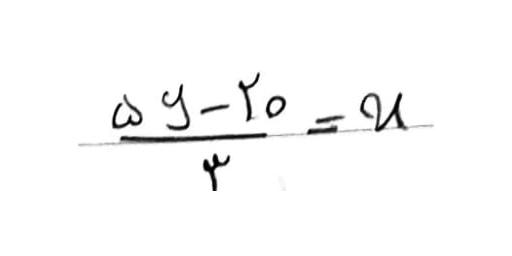 (۵y - ۲۰) / ۳ = x